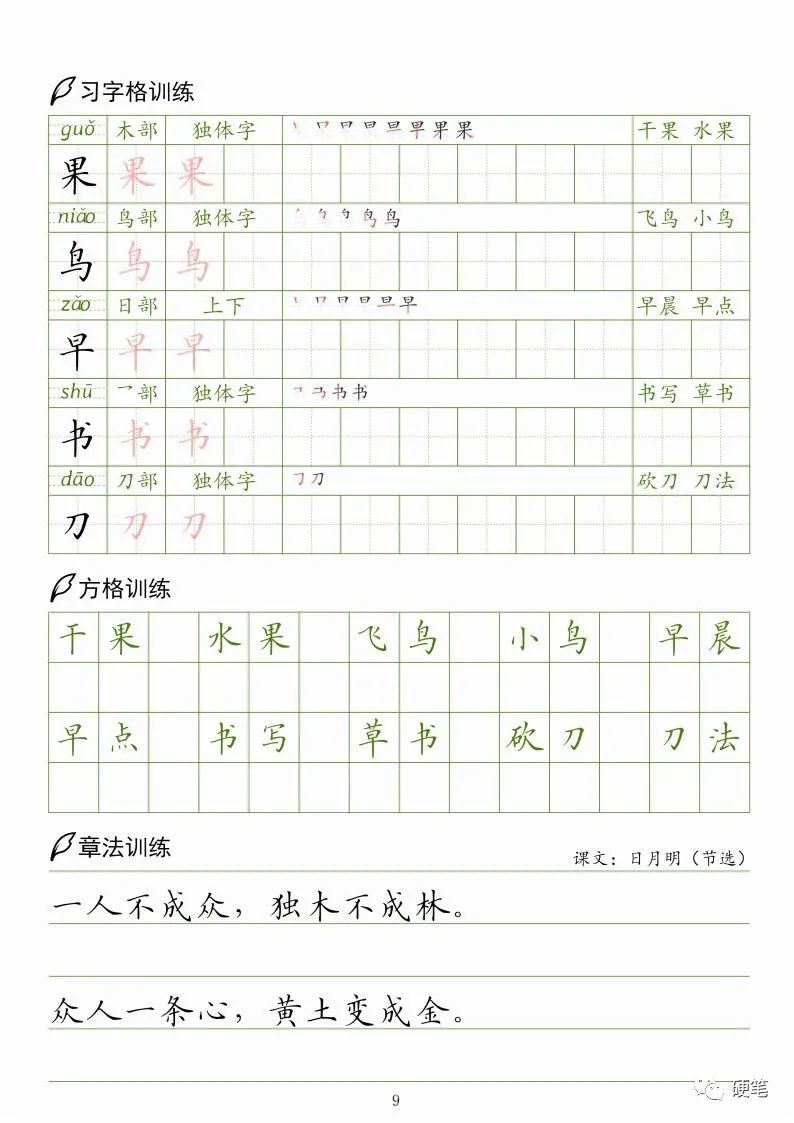 习字格训练
guǒ 木部 独体字 干果 水果
果 果 果
niǎo 鸟部 独体字 飞鸟 小鸟
鸟 鸟 鸟
zǎo 日部 上下 早晨 早点
早 早 早
shū 乛部 独体字 书写 草书
书 书 书
dāo 刀部 独体字 砍刀 刀法
刀 刀 刀
方格训练
干果 水果 飞鸟 小鸟 早晨
早点 书写 草书 砍刀 刀法
章法训练
课文：日月明（节选）
一人不成众，独木不成林。
众人一条心，黄土变成金。
9
硬笔